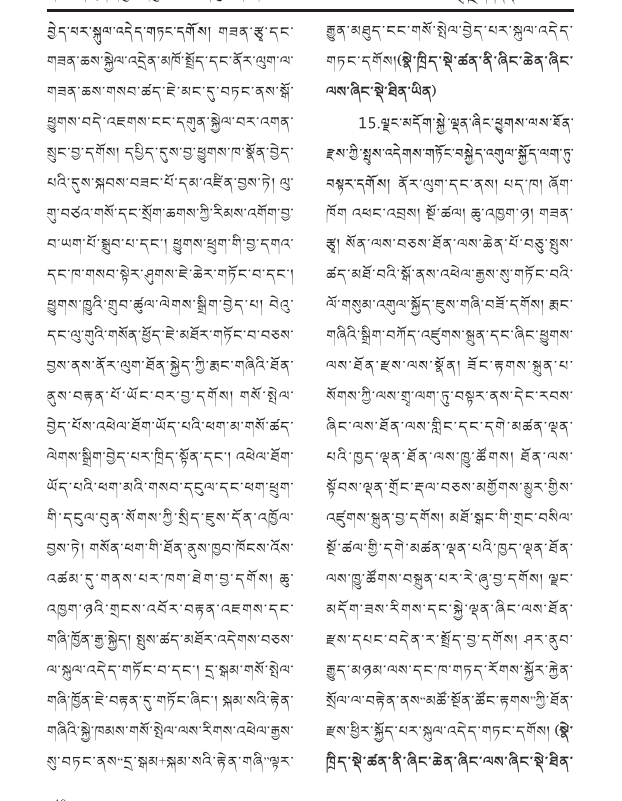 བྱེད་པར་སྐུལ་འདེད་གཏང་དགོས། གཟན་རྩྭ་དང་
གཟན་ཆས་སྐྱེལ་འདྲེན་མཁོ་སྤྲོད་དང་ནོར་ལུག་ལ་
གཟན་ཆས་གསབ་ཚད་ཇེ་མང་དུ་བཏང་ནས་སྒོ་
ཕྱུགས་བདེ་འཇགས་ངང་དགུན་སྐྱེལ་བར་འགན་
སྲུང་བྱ་དགོས། དཔྱིད་དུས་བྱ་ཕྱུགས་ཁ་སྣོན་བྱེད་
པའི་དུས་སྐབས་བཟང་པོ་དམ་འཛིན་བྱས་ཏེ། ལུ་
གུ་བཙའ་གསོ་དང་སྲོག་ཆགས་ཀྱི་རིམས་འགོག་བྱ་
བ་ཡག་པོ་སྒྲུབ་པ་དང་། ཕྱུགས་ཕྲུག་གི་བྱ་དགའ་
དང་ཁ་གསབ་སྟེར་ཤུགས་ཇེ་ཆེར་གཏོང་བ་དང་།
ཕྱུགས་ཁྱུའི་གྲུབ་ཚུལ་ལེགས་སྒྲིག་བྱེད་པ། བེའུ་
དང་ལུ་གུའི་གསོན་ཕྱོད་ཇེ་མཐོར་གཏོང་བ་བཅས་
བྱས་ནས་ནོར་ལུག་ཐོན་སྐྱེད་ཀྱི་རྨང་གཞིའི་ཐོན་
ནུས་བརྟན་པོ་ཡོང་བར་བྱ་དགོས། གསོ་སྤེལ་
བྱེད་པོས་འཕེལ་ཐོག་ཡོད་པའི་ཕག་མ་གསོ་ཚད་
ལེགས་སྒྲིག་བྱེད་པར་ཁྲིད་སྟོན་དང་། འཕེལ་ཐོག་
ཡོད་པའི་ཕག་མའི་གསབ་དངུལ་དང་ཕག་ཕྲུག་
གི་དངུལ་བུན་སོགས་ཀྱི་སྲིད་ཇུས་དོན་འཁྱོལ་
བྱས་ཏེ། གསོན་ཕག་གི་ཐོན་ནུས་ཁྱབ་ཁོངས་འོས་
འཚམ་དུ་གནས་པར་ཁག་ཐེག་བྱ་དགོས། ཆུ་
འཁྱག་ཉའི་གྲངས་འབོར་བརྟན་འཇགས་དང་
གཞི་ཁྱོན་རྒྱ་སྐྱེད། སྤུས་ཚད་མཐོར་འདེགས་བཅས་
ལ་སྐུལ་འདེད་གཏོང་བ་དང་། དྲ་སྒམ་གསོ་སྤེལ་
གཞི་ཁྱོན་ཇེ་བརྟན་དུ་གཏོང་ཞིང་། སྐམ་སའི་རྟེན་
གཞིའི་སྐྱེ་ཁམས་གསོ་སྤེལ་ལས་རིགས་འཕེལ་རྒྱས་
སུ་བཏང་ནས“དྲ་སྒམ+སྐམ་སའི་རྟེན་གཞི”ལྟར་
རྒྱུན་མཐུད་ངང་གསོ་སྤེལ་བྱེད་པར་སྐུལ་འདེད་
གཏང་དགོས།(སྣེ་ཁྲིད་སྡེ་ཚན་ནི་ཞིང་ཆེན་ཞིང་
ལས་ཞིང་སྡེ་ཐིན་ཡིན)
15.ལྗང་མདོག་སྐྱེ་ལྡན་ཞིང་ཕྱུགས་ལས་ཐོན་
རྫས་ཀྱི་སྤུས་འདེགས་གཏོང་བསྐྱེད་འགུལ་སྐྱོད་ལག་ཏུ་
བསྟར་དགོས། ནོར་ལུག་དང་ནས། པད་ཁ། ཞོག་
ཁོག འཕང་འབྲས། སྔོ་ཚལ། ཆུ་འཁྱག་ཉ། གཟན་
རྩྭ། སོན་ལས་བཅས་ཐོན་ལས་ཆེན་པོ་བཅུ་སྤུས་
ཚད་མཐོ་བའི་སྒོ་ནས་འཕེལ་རྒྱས་སུ་གཏོང་བའི་
ལོ་གསུམ་འགུལ་སྐྱོད་ཇུས་གཞི་བཟོ་དགོས། རྨང་
གཞིའི་སྒྲིག་བཀོད་འཛུགས་སྐྲུན་དང་ཞིང་ཕྱུགས་
ལས་ཐོན་རྫས་ལས་སྣོན། ཟོང་རྟགས་སྐྲུན་པ་
སོགས་ཀྱི་ལས་གྲྭ་ལག་ཏུ་བསྟར་ནས་དེང་རབས་
ཞིང་ལས་ཐོན་ལས་གླིང་དང་དགེ་མཚན་ལྡན་
པའི་ཁྱད་ལྡན་ཐོན་ལས་ཁྱུ་ཚོགས། ཐོན་ལས་
སྟོབས་ལྡན་གྲོང་རྡལ་བཅས་མགྱོགས་མྱུར་གྱིས་
འཛུགས་སྐྲུན་བྱ་དགོས། མཐོ་སྒང་གི་གྲང་བསིལ་
སྔོ་ཚལ་གྱི་དགེ་མཚན་ལྡན་པའི་ཁྱད་ལྡན་ཐོན་
ལས་ཁྱུ་ཚོགས་བསྐྲུན་པར་རེ་ཞུ་བྱ་དགོས། ལྗང་
མདོག་ཟས་རིགས་དང་སྐྱེ་ལྡན་ཞིང་ལས་ཐོན་
རྫས་དཔང་བདེན་ར་སྤྲོད་བྱ་དགོས། ཤར་ནུབ་
རྒྱུད་མཉམ་ལས་དང་ཁ་གཏད་རོགས་སྐྱོར་རྐྱེན་
སྲོལ་ལ་བརྟེན་ནས“མཚོ་སྔོན་ཚོང་རྟགས”ཀྱི་ཐོན་
རྫས་ཕྱིར་སྐྱོད་པར་སྐུལ་འདེད་གཏང་དགོས། (སྣེ་
ཁྲིད་སྡེ་ཚན་ནི་ཞིང་ཆེན་ཞིང་ལས་ཞིང་སྡེ་ཐིན་